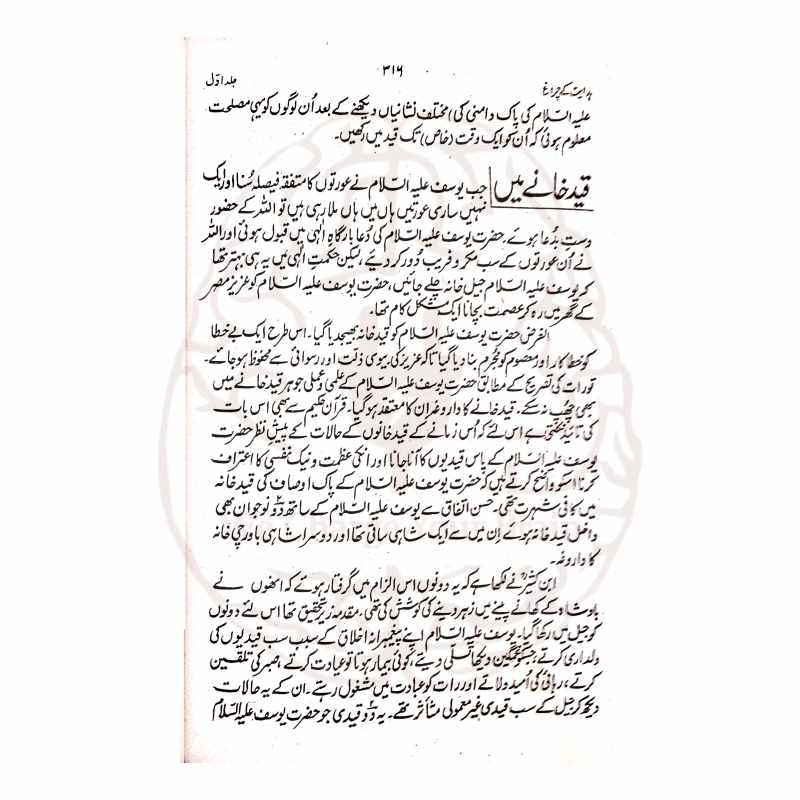 ۳۱۶
ہدایت کے چراغ
جلد اوّل
علیہ السّلام کی پاک دامنی کی) مختلف نشانیاں دیکھنے کے بعد اُن لوگوں کو یہی مصلحت
معلوم ہوئی کہ اُن کو ایک وقت (خاص) تک قید میں رکھیں۔
قید خانے میں
جب یوسف علیہ السّلام نے عورتوں کا متفقہ فیصلہ سُنا اور ایک
نہیں ساری عورتیں ہاں میں ہاں ملا رہی ہیں تو اللہ کے حضور
دستِ بدُعا ہوئے، حضرت یوسف علیہ السّلام کی دُعا بارگاہِ الٰہی میں قبول ہوئی اور اللہ
نے اُن عورتوں کے سب مکر و فریب دُور کر دیئے، لیکن حکمتِ الٰہی میں یہ ہی بہتر تھا
کہ یوسف علیہ السّلام جیل خانہ چلے جائیں، حضرت یوسف علیہ السّلام کو عزیز مصر
کے گھر میں رہ کر عصمت بچانا ایک مشکل کام تھا۔
الغرض حضرت یوسف علیہ السّلام کو قید خانہ بھیجدیا گیا۔ اس طرح ایک بے خطا
کو خطا کار اور معصوم کو مجرم بنا دیا گیا تاکہ عزیز کی بیوی ذلّت اور رسوائی سے محفوظ ہو جائے۔
تورات کی تصریح کے مطابق حضرت یوسف علیہ السّلام کے علمی و عملی جوہر قید خانے میں
بھی چھپ نہ سکے۔ قید خانے کا داروغہ ان کا معتقد ہو گیا۔ قرآن حکیم سے بھی اس بات
کی تائید نکلتی ہے اس لئے کہ اُس زمانے کے قید خانوں کے حالات کے پیشِ نظر حضرت
یوسف علیہ السّلام کے پاس قیدیوں کا آنا جانا اور انکی عظمت و نیک نفسی کا اعتراف
کرنا اسکو واضح کرتے ہیں کہ حضرت یوسف علیہ السّلام کے پاک اوصاف کی قید خانہ
میں کافی شہرت تھی۔ حسن اتفاق سے یوسف علیہ السّلام کے ساتھ دو نوجوان بھی
داخل قید خانہ ہوئے اِن میں سے ایک شاہی ساقی تھا اور دوسرا شاہی باورچی خانہ
کا داروغہ۔
ابن کثیرؒ نے لکھا ہے کہ یہ دونوں اس الزام میں گرفتار ہوئے کہ انھوں نے
بادشاہ کے کھانے پینے میں زہر دینے کی کوشش کی تھی۔ مقدمہ زیر تحقیق تھا اس لئے دونوں
کو جیل میں رکھا گیا۔ یوسف علیہ السّلام اپنے پیغمبرانہ اخلاق کے سبب سب قیدیوں کی
دلداری کرتے، جسکو غمگین دیکھا تسلّی دیتے، کوئی بیمار ہوتا تو عیادت کرتے، صبر کی تلقین
کرتے، رہائی کی اُمید دلاتے اور رات کو عبادت میں مشغول رہتے۔ ان کے یہ حالات
دیکھ کر جیل کے سب قیدی غیر معمولی متأثر تھے۔ یہ دو قیدی جو حضرت یوسف علیہ السّلام